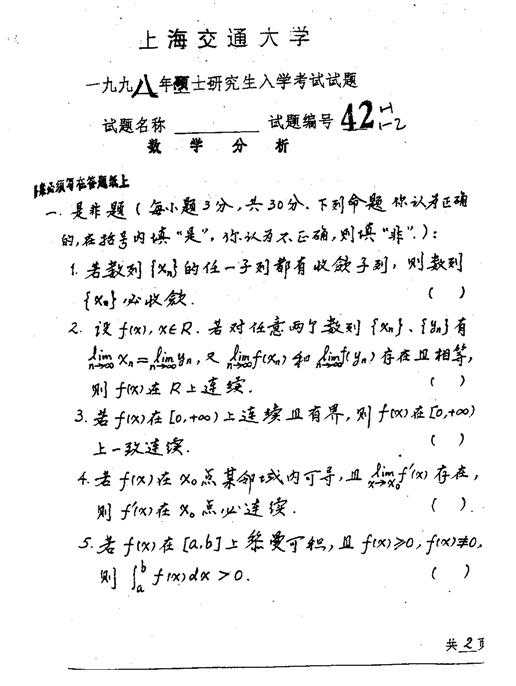 上海交通大学
一九九八年硕士研究生入学考试试题
试题名称 ________ 试题编号 42 1-1
1-2
数学分析
必须写在答题纸上
一. 是非题 (每小题3分,共30分. 下列命题你认为正确
的,在括号内填"是",你认为不正确,则填"非".):
1. 若数列{xₙ}的任一子列都有收敛子列, 则数列
{xₙ}必收敛. ( )
2. 设 f(x), x∈R. 若对任意两个数列{xₙ}、{yₙ}有
lim_{n→∞} xₙ = lim_{n→∞} yₙ, 又 lim_{n→∞} f(xₙ) 和 lim_{n→∞} f(yₙ) 存在且相等,
则 f(x) 在 R 上连续. ( )
3. 若 f(x) 在 [0,+∞) 上连续且有界, 则 f(x) 在 [0,+∞)
上一致连续. ( )
4. 若 f(x) 在 x₀ 点某邻域内可导, 且 lim_{x→x₀} f'(x) 存在,
则 f'(x) 在 x₀ 点必连续. ( )
5. 若 f(x) 在 [a,b] 上黎曼可积, 且 f(x)≥0, f(x)≢0,
则 ∫_a^b f(x)dx > 0. ( )
共 2 页